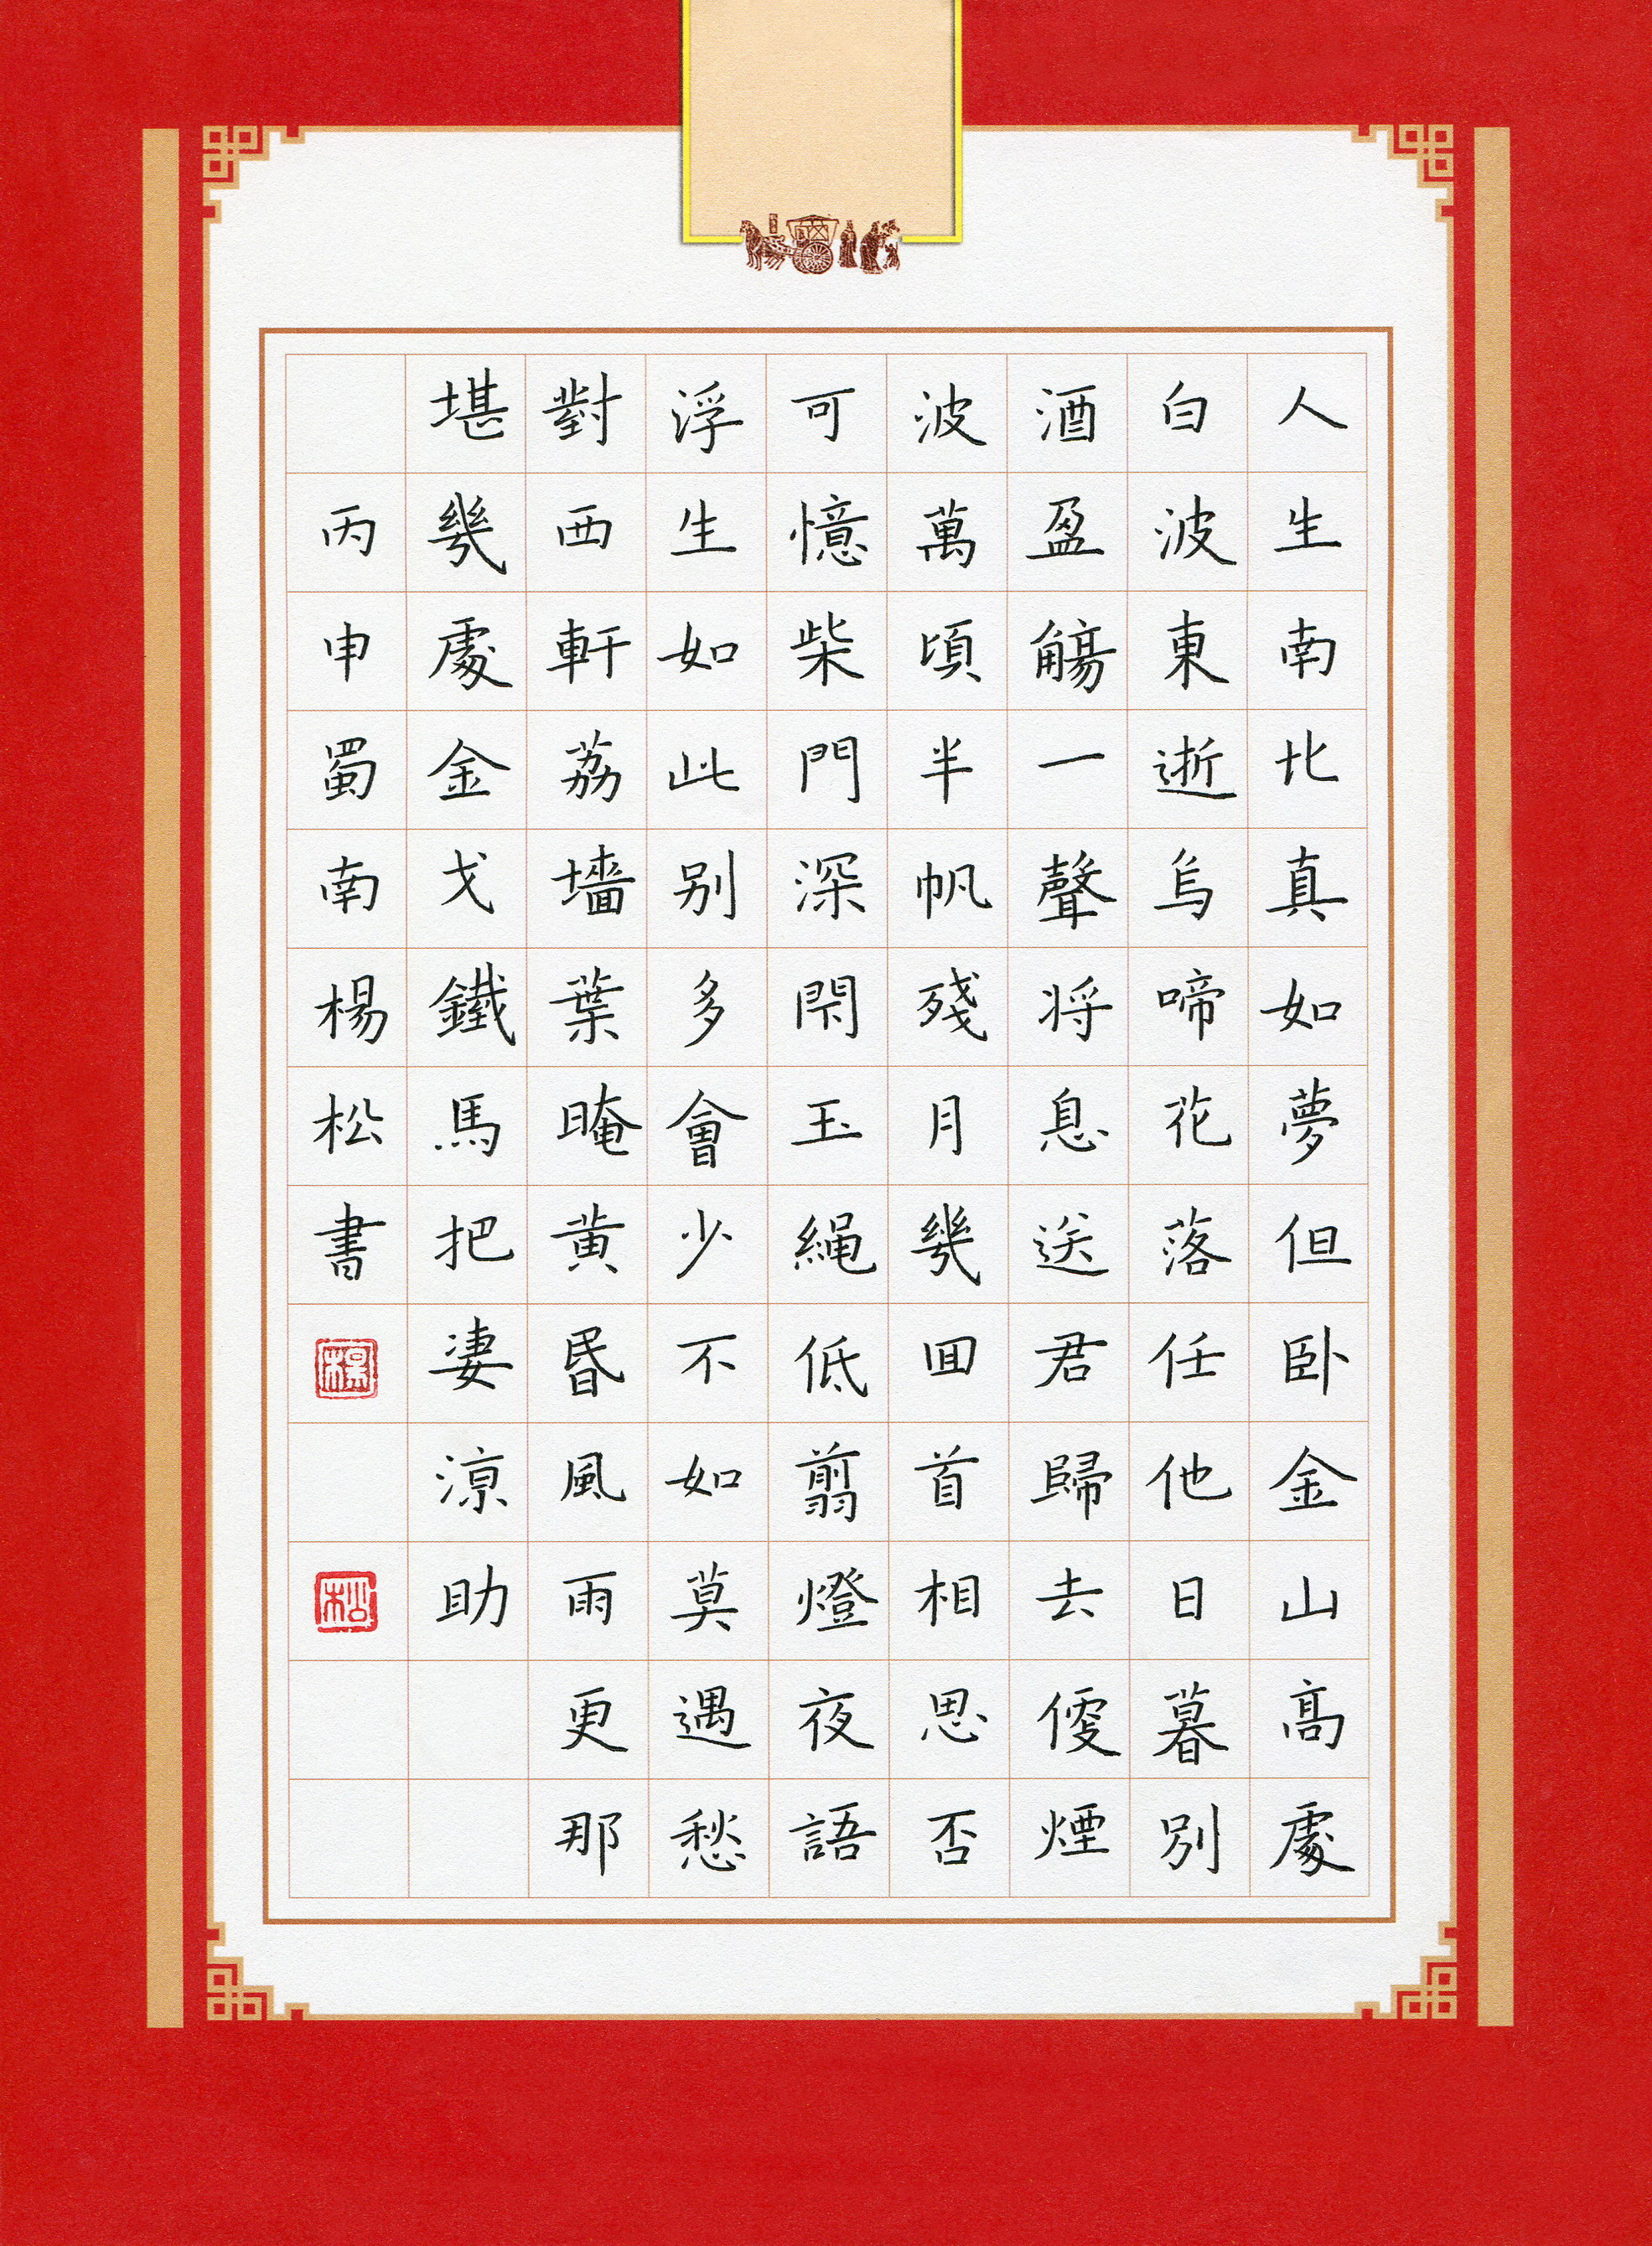 人生南北真如夢但卧金山高處
白波東逝烏啼花落任他日暮別
酒盈觴一聲将息送君歸去傻煙
波萬頃半帆殘月幾回首相思否
可憶柴門深閇玉繩低翦燈夜語
浮生如此别多會少不如莫遇愁
對西軒荔墻葉暗黄昏風雨更那
堪幾處金戈鐵馬把凄涼助
丙申蜀南楊松書
楊
松